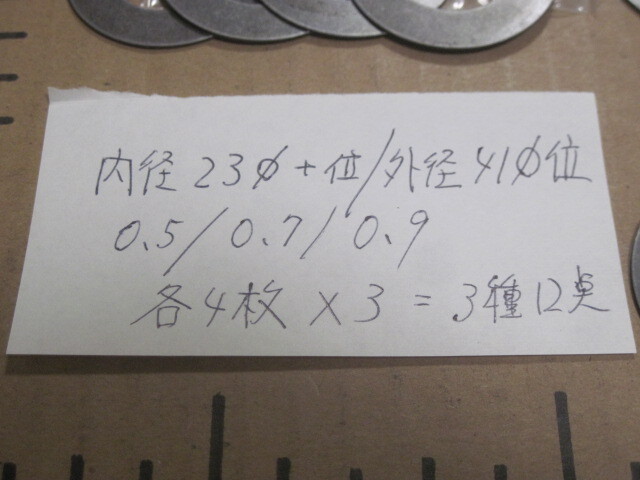 内径23φ+位/外径41φ位
0.5/0.7/0.9
各4枚×3=3種12点